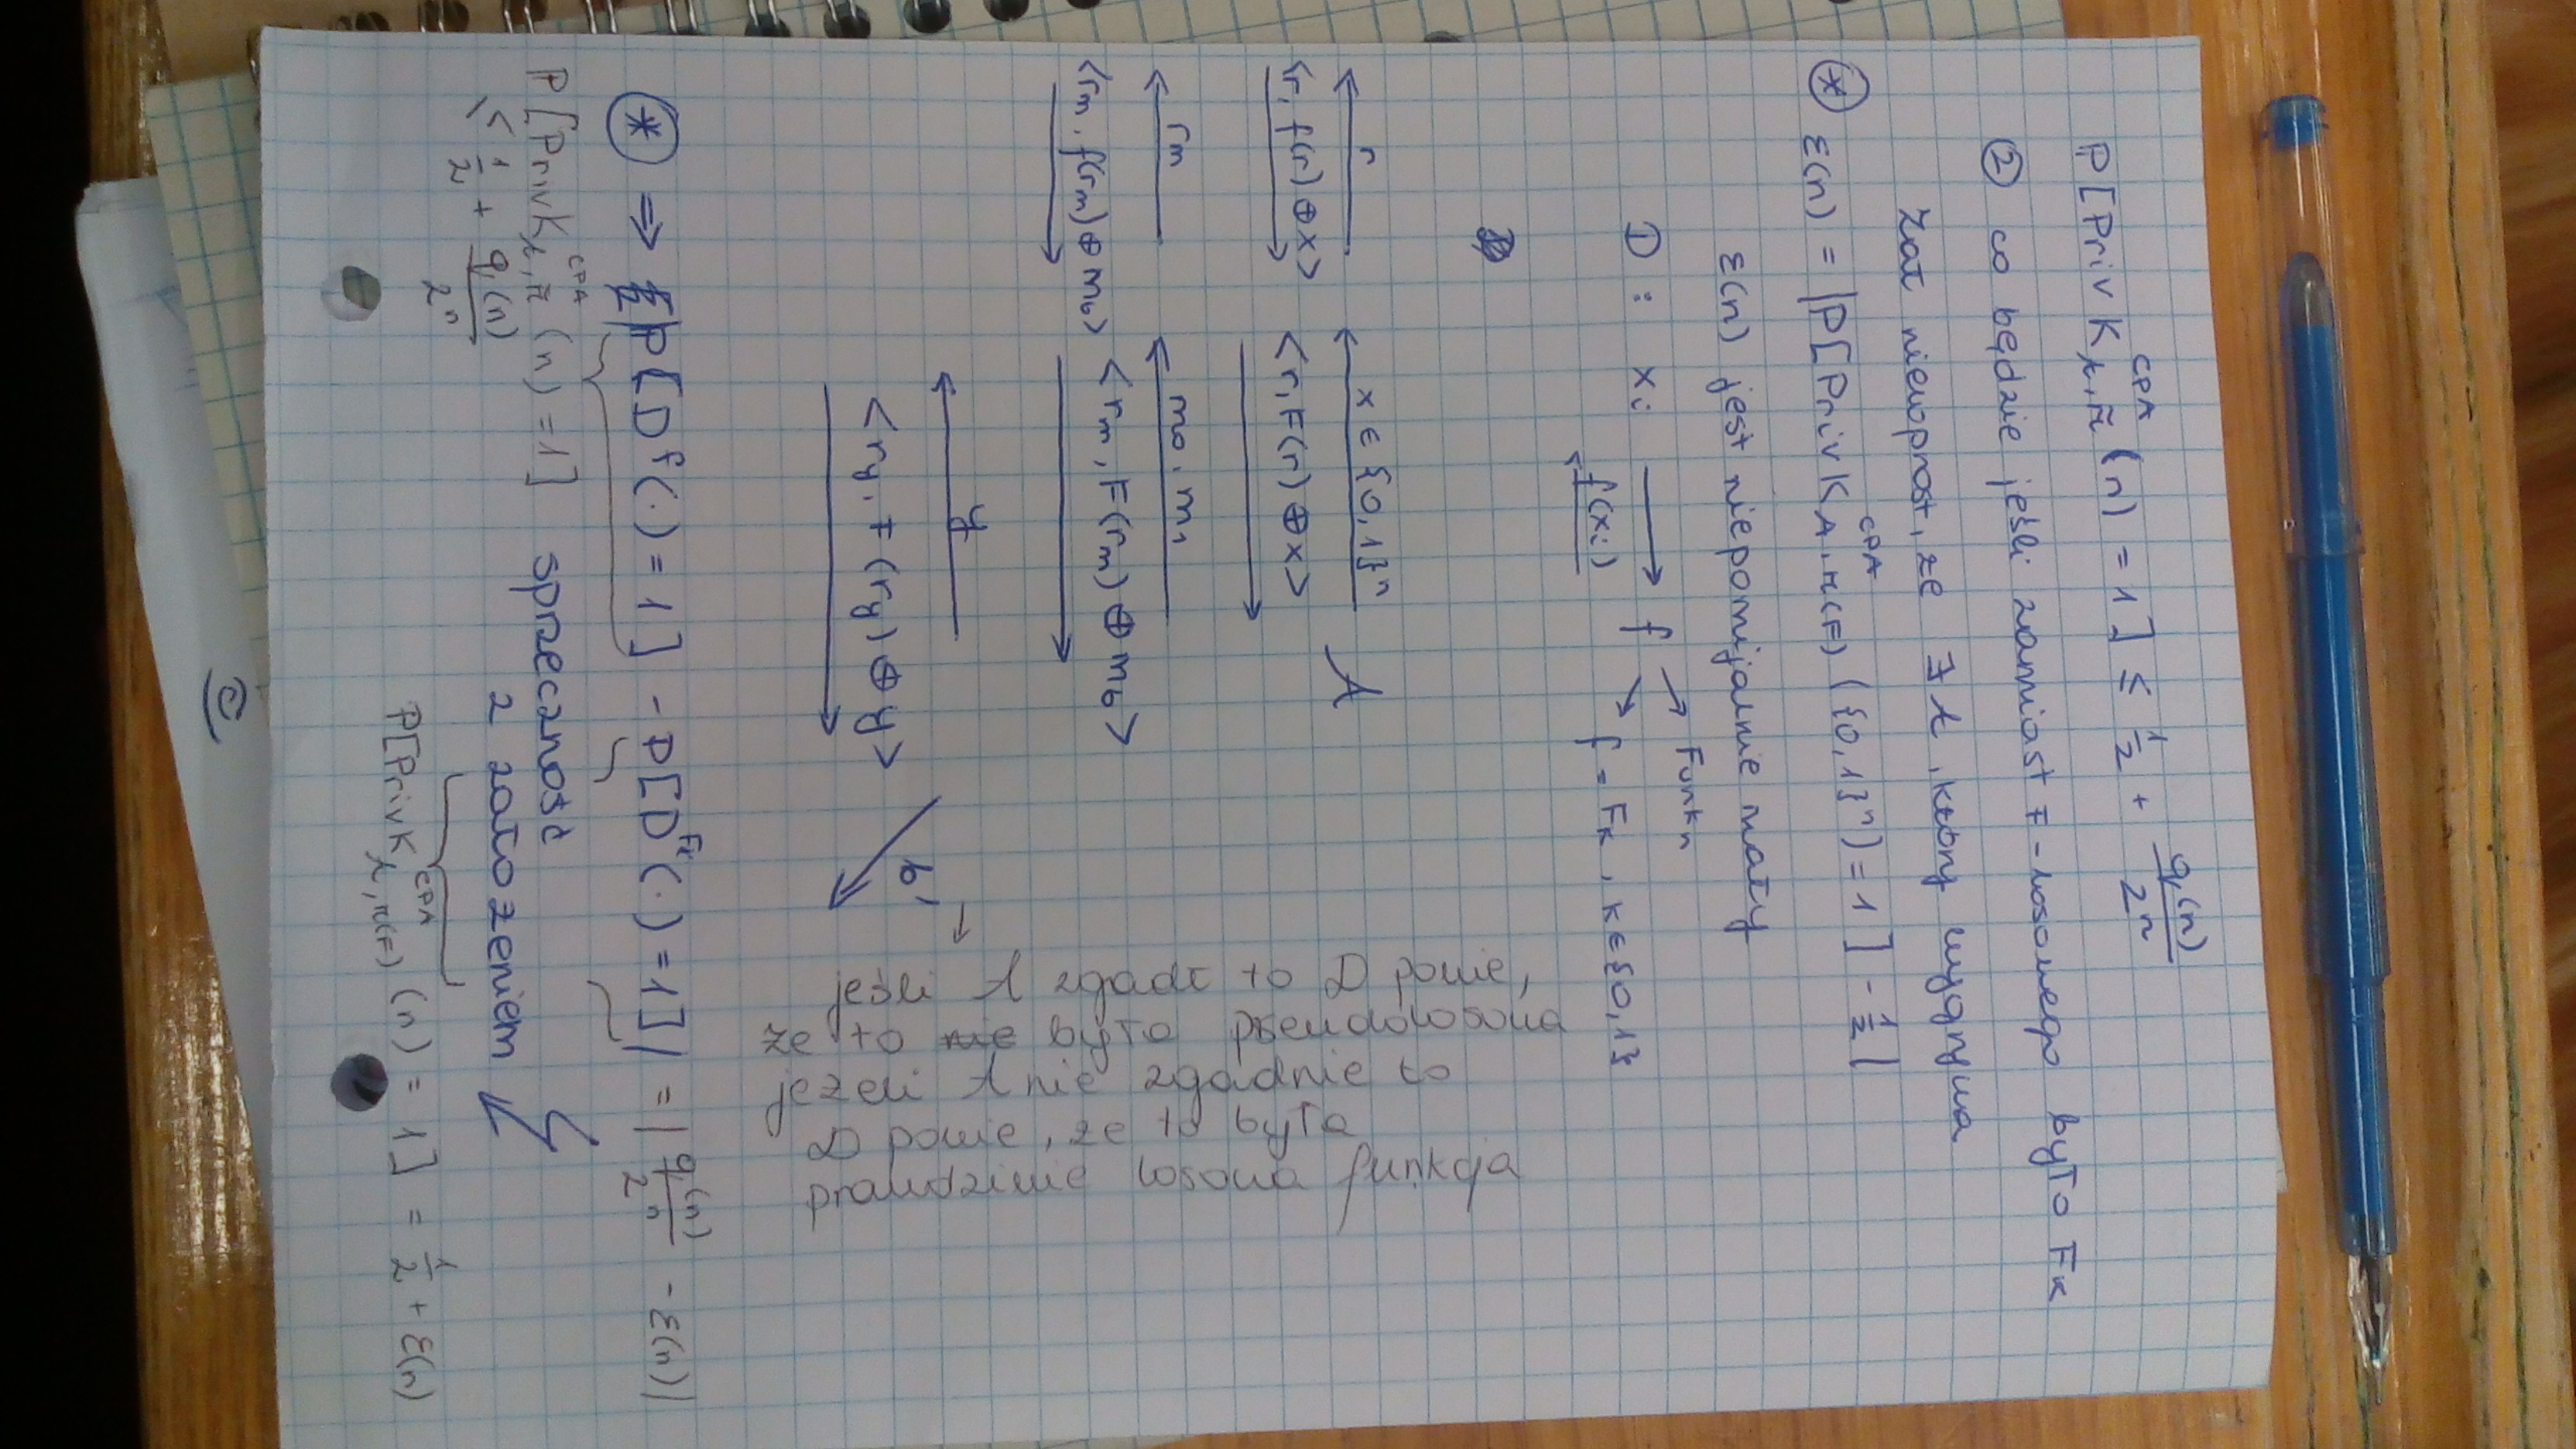 P[PrivK^{CPA}_{A,π̃}(n) = 1] ≤ 1/2 + q(n)/2^n
② co będzie jeśli zamiast F-losowego było F_K
Zał nieuoprost, że ∃ A, który wygrywa
⊛ ε(n) = |P[PrivK^{CPA}_{A,π(F)}({0,1}^n) = 1] - 1/2|
ε(n) jest niepomijalnie mały
D : x_i → f → Funk_n
f(x_i) ↘ f = F_K, k∈{0,1}
r x ∈ {0,1}^n A
<r, f(r)⊕x> <r, F(r)⊕x>
r_m m_0, m_1
<r_m, f(r_m)⊕m_b> <r_m, F(r_m)⊕m_b>
y
<r_y, F(r_y)⊕y> b'
→ jeśli A zgadł to D powie,
że to nie było pseudolosowa
jeżeli A nie zgadnie to
D powie, że to była
prawdziwie losowa funkcja
⊛ ⇒ |P[D^f(·) = 1] - P[D^{F_K}(·) = 1]| = |q(n)/2^n - ε(n)|
P[PrivK^{CPA}_{A,π̃}(n) = 1] sprzeczność
≤ 1/2 + q(n)/2^n z założeniem
P[PrivK^{CPA}_{A,π(F)}(n) = 1] = 1/2 + ε(n)